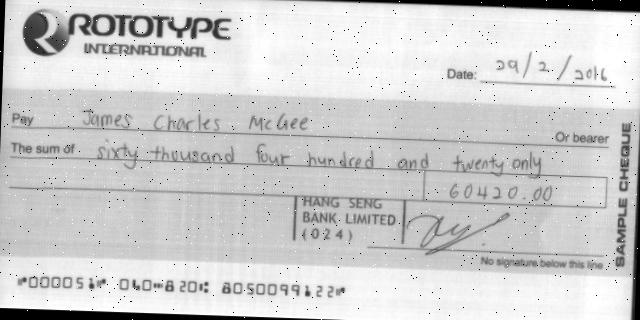 ROTOTYPE
INTERNATIONAL
Date: 29/2/2016
Pay James Charles McGee Or bearer
The sum of sixty thousand four hundred and twenty only
60420.00
HANG SENG
BANK LIMITED
(024)
No signature below this line
SAMPLE CHEQUE
⑈000051⑈ 040⑉820⑆ 805009912 2⑈